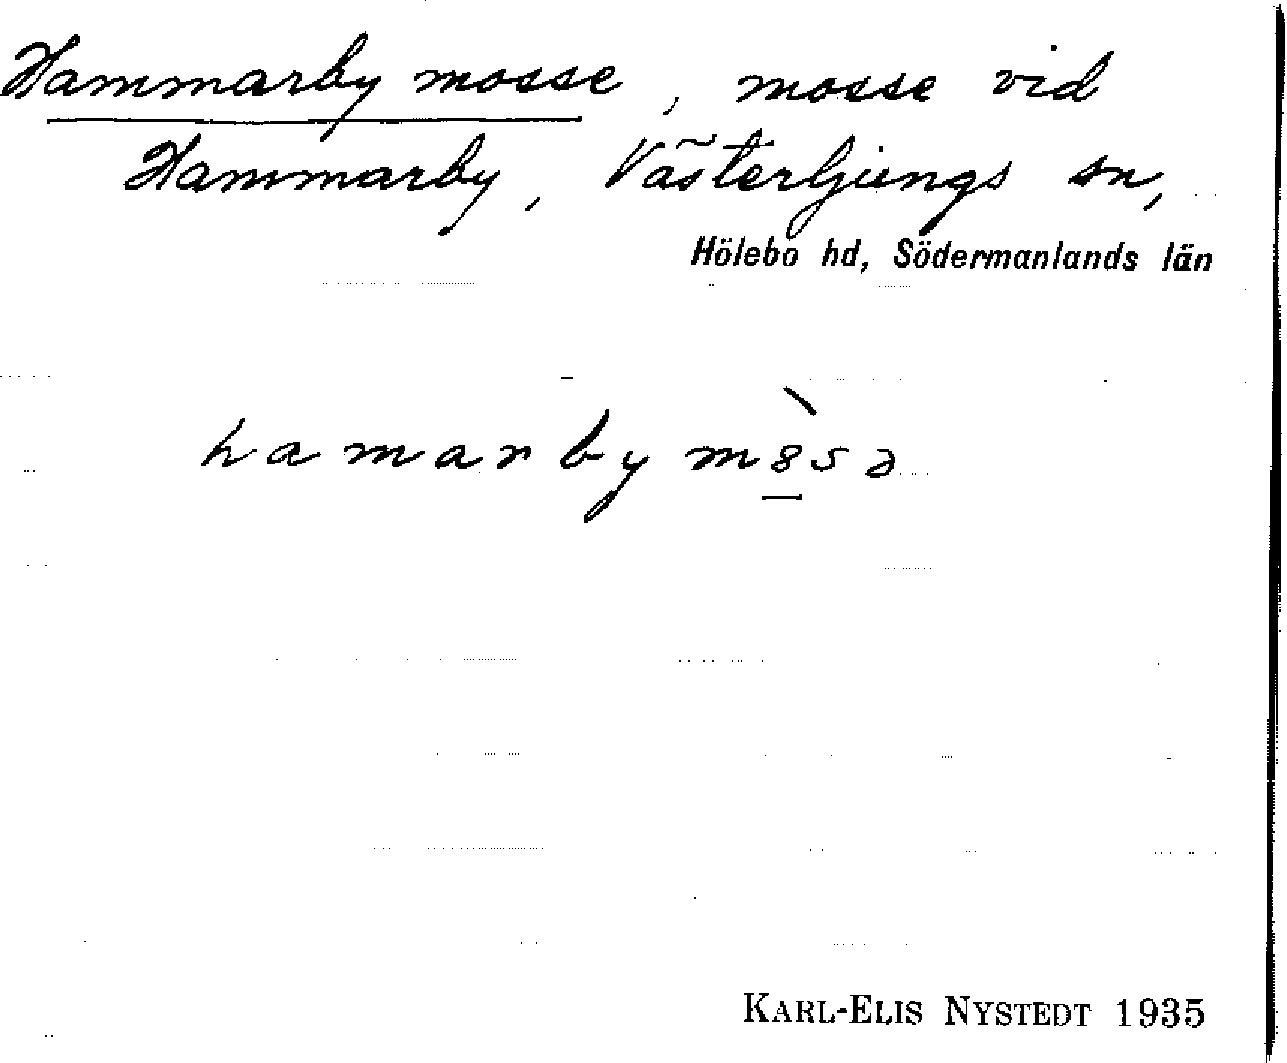 Hammarby mosse, mosse vid
Hammarby, Västerljungs sn,
Hölebo hd, Södermanlands län
hamarbym8̱̀sə
KARL-ELIS NYSTEDT 1935